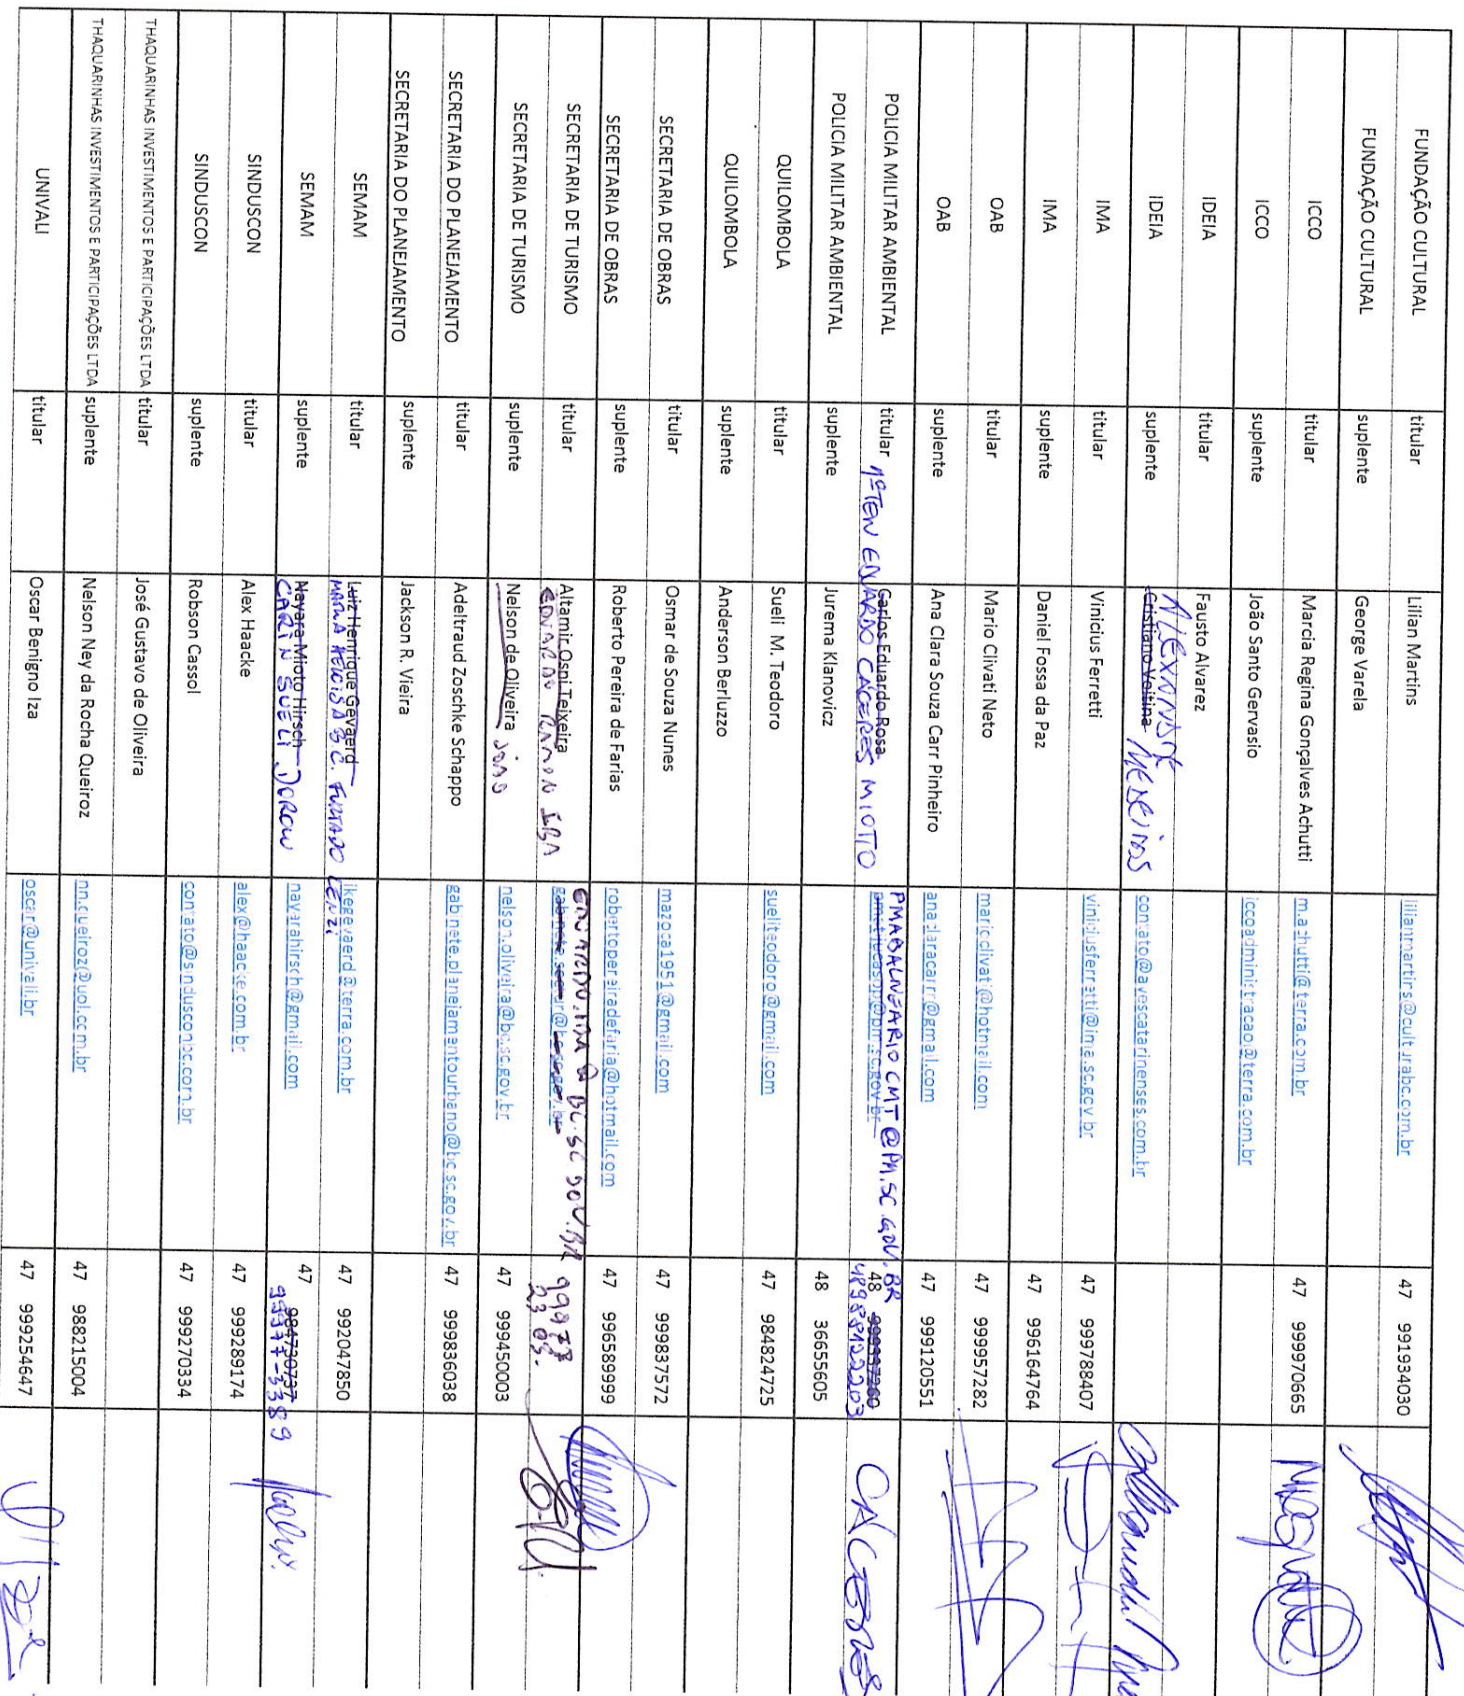 FUNDAÇÃO CULTURAL titular Lilian Martins lilianmartins@culturabc.com.br 47 991934030
FUNDAÇÃO CULTURAL suplente George Varela
ICCO titular Marcia Regina Gonçalves Achutti m.achutti@terra.com.br 47 999970665
ICCO suplente João Santo Gervasio iccoadministracao@terra.com.br
IDEIA titular Fausto Alvarez
IDEIA suplente Cristiano Voitina ALEXANDRE MEDEIROS contato@avescatarinenses.com.br
IMA titular Vinicius Ferretti viniciusferretti@ima.sc.gov.br 47 999788407
IMA suplente Daniel Fossa da Paz 47 996164764
OAB titular Mario Clivati Neto marioclivati@hotmail.com 47 999957282
OAB suplente Ana Clara Souza Carr Pinheiro anaclaracarr@gmail.com 47 999120551
POLICIA MILITAR AMBIENTAL titular 1º TEN EDUARDO CÁCERES MIOTTO Carlos Eduardo Rosa PMABALNEARIOCMT@PM.SC.GOV.BR 48
POLICIA MILITAR AMBIENTAL suplente Jurema Klanovicz 48 36655605
QUILOMBOLA titular Sueli M. Teodoro sueliteodoro@gmail.com 47 984824725
QUILOMBOLA suplente Anderson Berluzzo
SECRETARIA DE OBRAS titular Osmar de Souza Nunes mazoca1951@gmail.com 47 999837572
SECRETARIA DE OBRAS suplente Roberto Pereira de Farias robertopereiradefaria@hotmail.com 47 996589999
SECRETARIA DE TURISMO titular Altamir Osni Teixeira EDUARDO RAMON
SECRETARIA DE TURISMO suplente Nelson de Oliveira JOÃO nelson.oliveira@bc.sc.gov.br 47 999450003
SECRETARIA DO PLANEJAMENTO titular Adeltraud Zoschke Schappo gabinete.planejamentourbano@bc.sc.gov.br 47 999836038
SECRETARIA DO PLANEJAMENTO suplente Jackson R. Vieira
SEMAM titular Luiz Henrique Gevaerd MARIA HELOISA B.C. FURTADO LENZI ikegevaerd@terra.com.br 47 992047850
SEMAM suplente Nayara Mioto Hirsch CARIN SUELI DOROW nayarahirsch@gmail.com 47 984730737 99977-3389
SINDUSCON titular Alex Haacke alex@haacke.com.br 47 999289174
SINDUSCON suplente Robson Cassol contato@sindusconbc.com.br 47 999270334
THAQUARINHAS INVESTIMENTOS E PARTICIPAÇÕES LTDA titular José Gustavo de Oliveira
THAQUARINHAS INVESTIMENTOS E PARTICIPAÇÕES LTDA suplente Nelson Ney da Rocha Queiroz nn.queiroz@uol.com.br 47 988215004
UNIVALI titular Oscar Benigno Iza oscar@univali.br 47 999254647